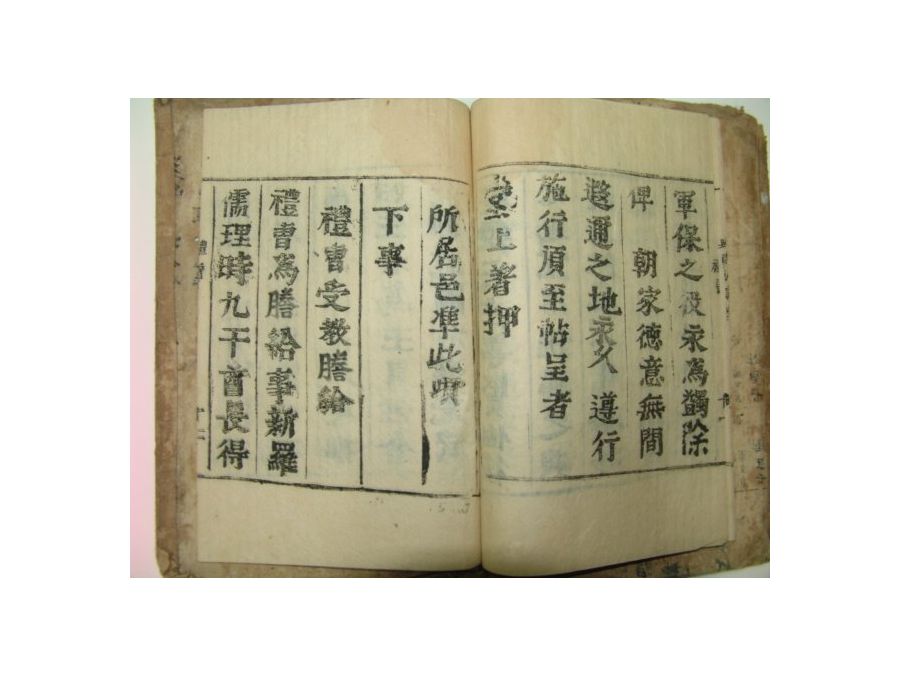 軍保之役永爲蠲除
俾 朝家德意無間
遐邇之地永久遵行
施行須至帖呈者
堂上著押
所居邑準此
下事
禮曹受教謄給
禮曹爲謄給事新羅
儒理時九干酋長得